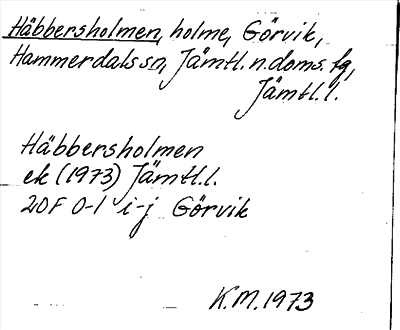 Häbbersholmen, holme, Görvik,
Hammerdals sn, Jämtl. n. doms. fg,
Jämtl. l.
Häbbersholmen
ek (1973) Jämtl. l.
20F 0-1 i-j Görvik
K.M. 1973